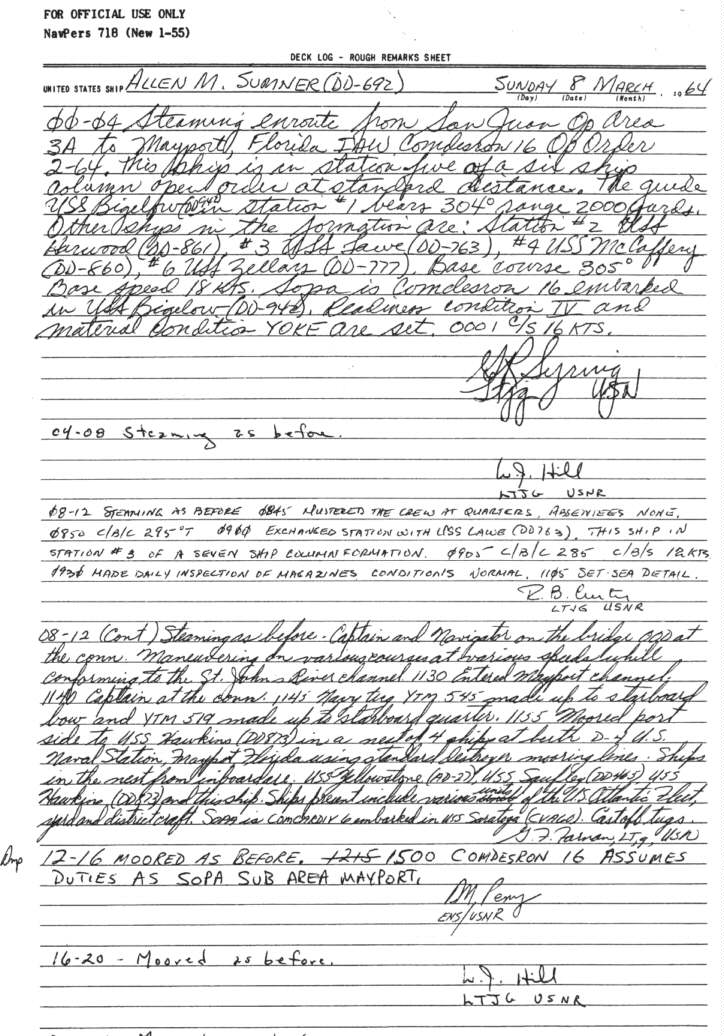 FOR OFFICIAL USE ONLY
NavPers 718 (New 1-55)
DECK LOG - ROUGH REMARKS SHEET
UNITED STATES SHIP ALLEN M. SUMNER (DD-692) SUNDAY 8 MARCH, 1964
(Day) (Date) (Month)
00-04 Steaming enroute from San Juan Op Area
3A to Mayport, Florida IAW Comdesron 16 Op Order
2-64. This ship is in station five of a six ship
column open order at standard distance. The guide
USS Bigelow (DD942) in station #1 bears 304° range 2000 yards.
Other ships in the formation are: Station #2 USS
Harwood (DD-861), #3 USS Lawe (DD-763), #4 USS McCaffery
(DD-860), #6 USS Zellars (DD-777). Base course 305°
Base speed 18 KTS. Sopa is Comdesron 16 embarked
in USS Bigelow (DD-942). Readiness condition IV and
material Condition YOKE are set. 0001 C/S 16 KTS.
Syring
Ltjg USN
04-08 Steaming as before.
W.J. Hill
LTJG USNR
08-12 STEAMING AS BEFORE 0845 MUSTERED THE CREW AT QUARTERS, ABSENTEES NONE.
0850 C/B/C 295°T 0900 EXCHANGED STATION WITH USS LAWE (DD763). THIS SHIP IN
STATION #3 OF A SEVEN SHIP COLUMN FORMATION. 0905 C/B/C 285 C/B/S 18 KTS
0930 MADE DAILY INSPECTION OF MAGAZINES CONDITIONS NORMAL. 1105 SET SEA DETAIL.
R. B. Curtis
LTJG USNR
08-12 (Cont) Steaming as before. Captain and Navigator on the bridge OOD at
the conn. Maneuvering on various courses at various speeds while
conforming to the St. Johns River channel 1130 Entered Mayport channel,
1140 Captain at the conn. 1145 Navy tug YTM 545 made up to starboard
bow and YTM 519 made up to starboard quarter. 1155 Moored port
side to USS Hawkins (DD873) in a nest of 4 ships at berth D-2 U.S.
Naval Station, Mayport Florida using standard destroyer mooring lines. Ships
in the nest from inboard are, USS Yellowstone (AD-27), USS Saufley (DD465) USS
Hawkins (DD873) and this ship. Ships present include various units of the US Atlantic Fleet,
yard and district craft. SOPA is COMCARDIV 6 embarked in USS Saratoga (CVA60). Cast off tugs.
G. F. Farnan, LTjg, USN
Dmp 12-16 MOORED AS BEFORE. 1215 1500 COMDESRON 16 ASSUMES
DUTIES AS SOPA SUB AREA MAYPORT.
DM Perry
ENS/USNR
16-20 - Moored as before.
W.J. Hill
LTJG USNR